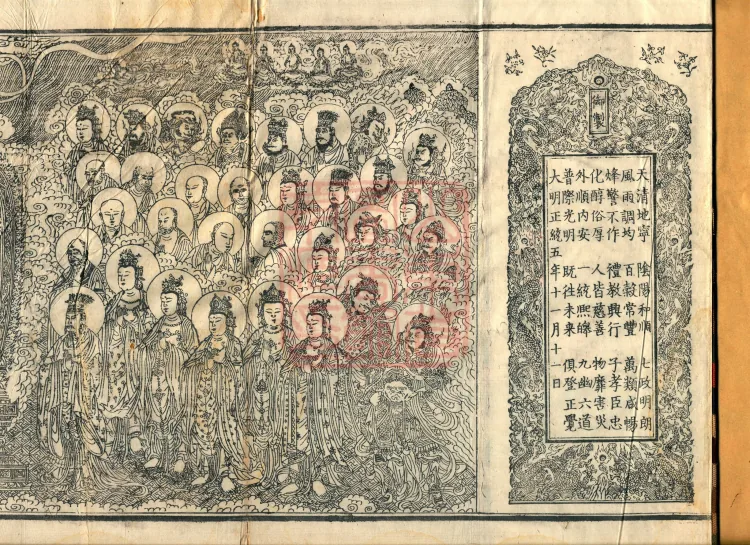 御製
天清地寧　陰陽和順　七政明朗
風雨調均　百穀常豐　萬類咸暢
烽警不作　禮教興行　子孝臣忠
化醇俗厚　人皆慈善　物靡害災
外順內安　一統熙皞　九幽六道
普際光明　既往未來　俱登正覺
大明正統五年十一月十一日